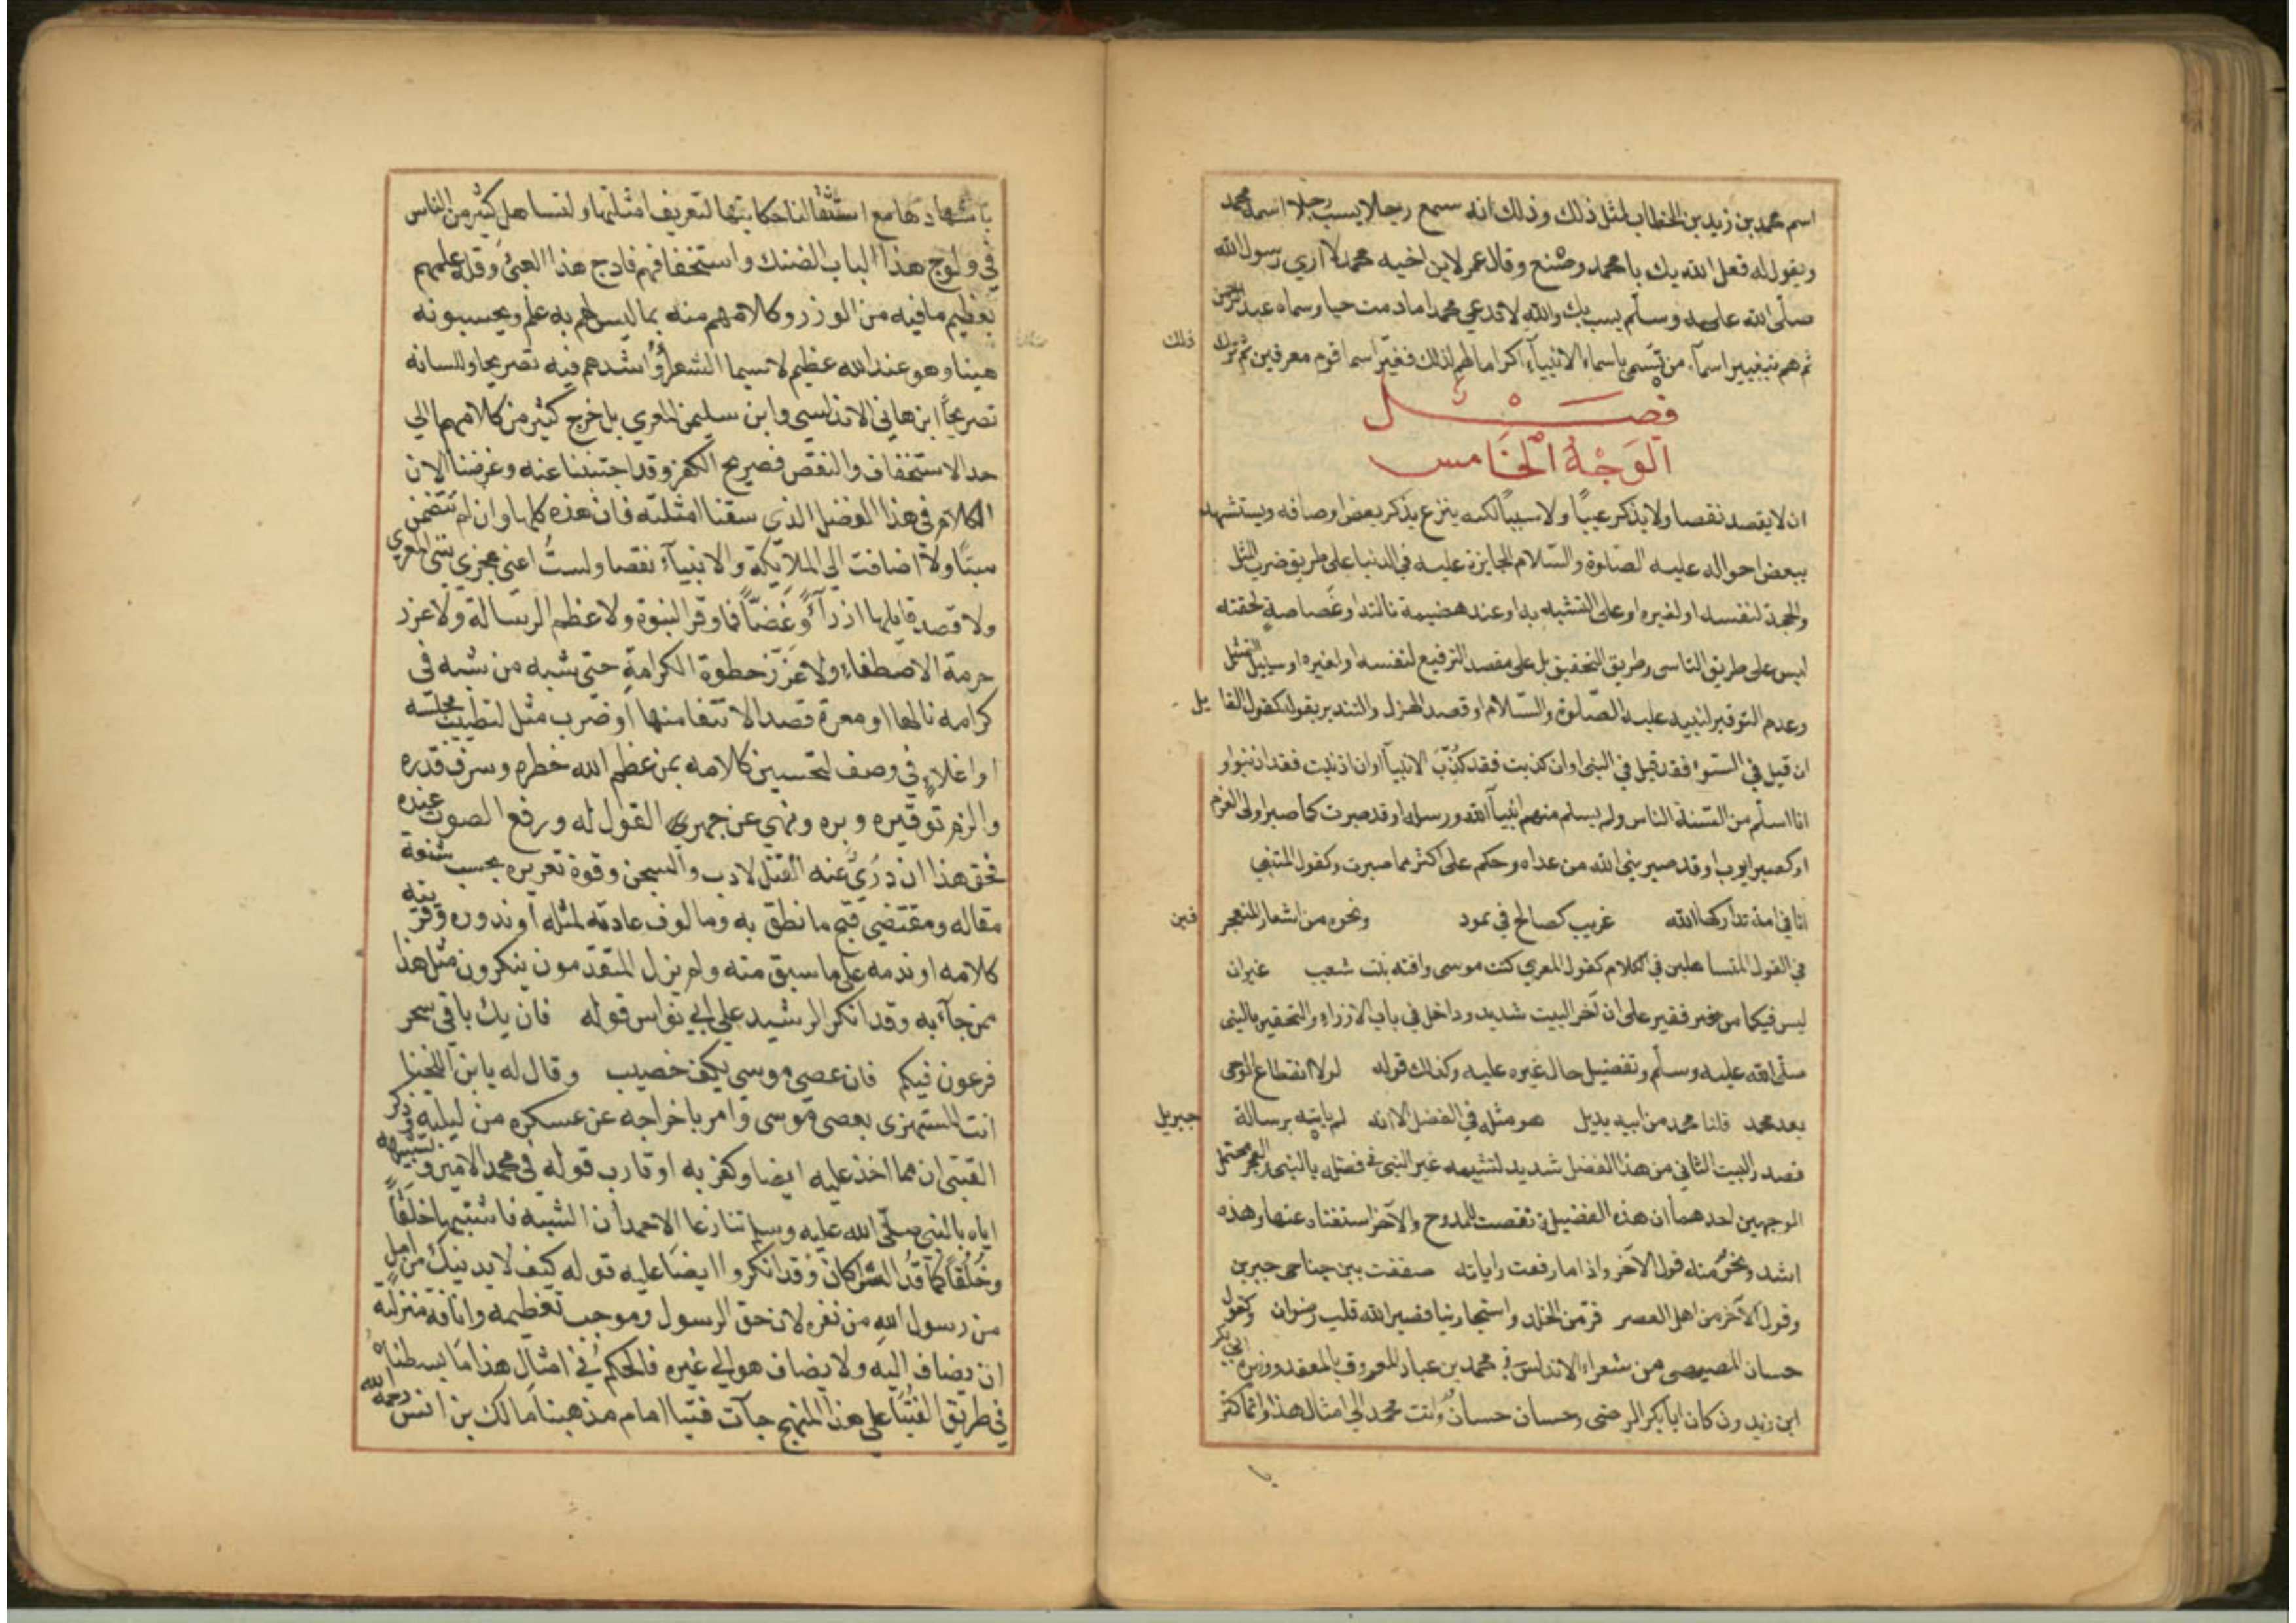 اسم محمد بن زيد بن الخطاب لمثل ذلك وذلك انه سمع رجلا يسب رجلا اسمه محمد
ويقول له فعل الله بك يا محمد وصنع وقال عمر لابن اخيه محمد لا اري رسول الله
صلّى الله عليه وسلّم يسب بك والله لا تدعي محمدا ما دمت حيا وسماه عبد الرحمن
ثم هم بتغيير اسماء من تسمى باسماء الانبياء اكراما لهم لذلك فغيّر اسما قوم معرفين ثم ترك
ذلك
فصل
الوَجْهُ الْخَامس
ان لا يقصد نقصا ولا يذكر عيبًا ولا سببًا لكنه ينزع بذكر بعض اوصافه ويستشهد
ببعض احواله عليه الصلوة والسّلام الجايزة عليه في الدنيا على طريق ضرب المثل
والحجة لنفسه او لغيره او على التشبه به او عند هضيمة نالته او غضاصة لحقته
ليس على طريق التاسى وطريق التحقيق بل على مقصد الترفيع لنفسه او لغيره او سبيل التمثل
وعدم التوقير لنبيه عليه الصّلوة والسّلام او قصد الهزل والتندير بقوله كقول القا يل
ان قيل في السّوء فقد قيل في النبى او ان كذبت فقد كُذّبَ الانبيا او ان اذنبت فقد اذنبوا او
انا اسلم من السنة الناس ولم يسلم منهم انبياء الله ورسله او قد صبرت كما صبر اولى العزم
او كصبر ايوب او قد صبر نبي الله من عداه وحكم على اكثر مما صبرت وكقول المتنبي
انا في امة تداركها الله غريب كصالح في ثمود ونحوه من اشعار المتعجر فين
في القول المتساهلين في الكلام كقول المعري كنت موسى وافته بنت شعيب غير ان
ليس فيكما من فقير على ان آخر البيت شديد وداخل في باب الازراء والتحقير بالنبى
صلى الله عليه وسلّم وتفضيل حال غيره عليه وكذلك قوله لولا انقطاع الوحى
بعد محمد قلنا محمد من ابيه بديل هو مثله في الفضل الا انه لم ياته برسالة جبريل
فصدر البيت الثاني من هذا الفصل شديد لتشبيهه غير النبى في فضله بالنبى والعجز محتمل
الوجهين احدهما ان هذه الفضيلة نقصت الممدوح والآخر استغناه عنها وهذه
اشد ونحوٌ منه قول الآخر واذا ما رفعت راياته صفقت بين جناحى جبرين
وقول الآخر من اهل العصر فرّ من الخلد واستجار بنا فصير الله قلب رضوان وكقول
حسان المصيصى من شعراء الاندلس في محمد بن عباد المعروف بالمعتمد ووزيره ابي بكر
ابن زيدون كان ابا بكر الرضى وحسان حسانٌ وانت محمد الى امثال هذا وانما كثر
باشهادها مع استثقالنا حكايتها لتعريف امثلتها ولتساهل كثير من الناس
في ولوج هذا الباب الضنك واستخفافهم فادح هذا العبئ وقلة علمهم
بعظيم ما فيه من الوزر وكلامهم منه بما ليس لهم به علم ويحسبونه
هينا وهو عند الله عظيم لاسيما الشعراء واشدهم فيه تصريحا وللسانه
تصريحًا ابن هانى الاندلسي وابن سليمن المعري بل خرج كثير من كلامهما الي
حد الاستخفاف والنقص وصريح الكفر وقد اجتنبنا عنه وغرضنا الان
الكلام في هذا الفضل الذي سقنا امثلته فان هذه كلها وان لم تتضمن
سبّا ولا اضافت الى الملايكة والانبياء نقصا ولستُ اعنى عجزي بيتى المعري
ولا قصد قايلها ازرآءً وغَضًّا فما وقر النبوة ولا عظم الرسالة ولا عزر
حرمة الاصطفاء ولا عزّز حظوة الكرامة حتى شبه من شبه في
كرامه نالها او معرة قصد الانتفا منها او ضرب مثل لتطييب مجلسه
او اغلاءٍ في وصف لتحسين كلامه بمن عظم الله خطره وشرف قدره
والزم توقيره وبره ونهي عن جهر القول له ورفع الصوت عنده
فحق هذا ان دُرئ عنه القتل لادب والسجن وقوة تعزيره بحسب شنعة
مقاله ومقتضي قبح ما نطق به ومالوف عادته لمثله او ندوره وقرينة
كلامه او ندمه على ما سبق منه ولم يزل المتقدمون ينكرون مثل هذا
ممن جآء به وقد انكر الرشيد على ابي نواس قوله فان يك باقي سحر
فرعون فيكم فان عصي موسي بكف خصيب وقال له يا بن اللخنا
انت المستهزى بعصى موسى وامر باخراجه عن عسكره من ليلته وذكر
القتبى ان مما اخذ عليه ايضا وكفر به او قارب قوله في محمد الامين وتشبيهه
اياه بالنبي صلّى الله عليه وسلم تنازعا الاحمدان الشبه فاشتبها خلقًا
وخُلُقًا كما قُدّ الشراكان وقد انكروا ايضا عليه قوله كيف لا يدنيك من امل
من رسول الله من نفره لان حق الرسول وموجب تعظيمه وانافة منزلته
ان يضاف اليه ولا يضاف هو الي غيره فالحكم في امثال هذا ما بسطناه
في طريق الفتيا على هذا المنهج جآت فتيا امام مذهبنا مالك بن انس رحمه الله